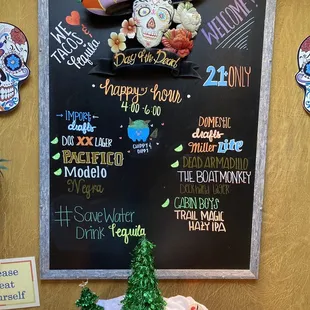 WE
♥
TACOS &
Tequila
WELCOME!
Day of the Dead
21 ONLY
happy hour
4:00-6:00
IMPORT
drafts
DOS XX LAGER
PACIFICO
Modelo
Negra
CHIPPY
DIPPY
DOMESTIC
drafts
Miller Lite
DEAD ARMADILLO
THE BOAT MONKEY
CABIN BOYS
TRAIL MAGIC
HAZY IPA
#SaveWater
Drink Tequila